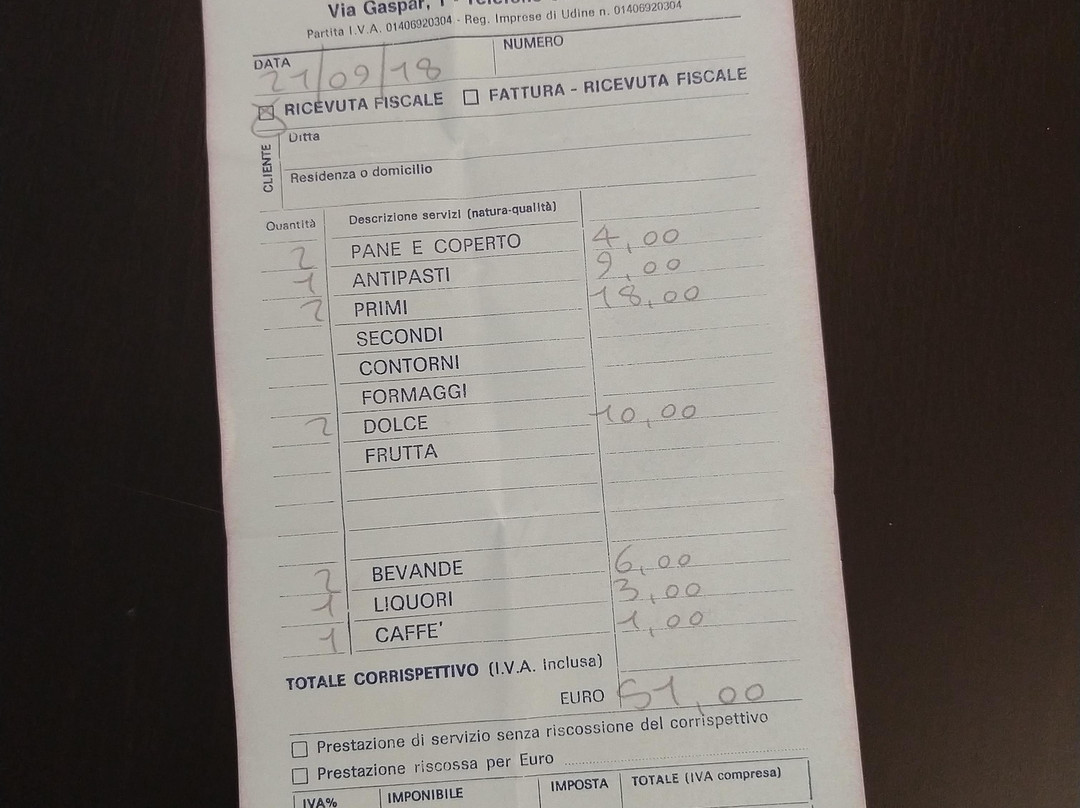 Via Gaspar, 1 -
Partita I.V.A. 01406920304 - Reg. Imprese di Udine n. 01406920304
DATA NUMERO
21/09/18
RICEVUTA FISCALE FATTURA - RICEVUTA FISCALE
CLIENTE
Ditta
Residenza o domicilio
Quantità Descrizione servizi (natura-qualità)
2 PANE E COPERTO 4,00
1 ANTIPASTI 9,00
2 PRIMI 18,00
SECONDI
CONTORNI
FORMAGGI
2 DOLCE 10,00
FRUTTA
2 BEVANDE 6,00
1 LIQUORI 3,00
1 CAFFE' 1,00
TOTALE CORRISPETTIVO (I.V.A. Inclusa)
EURO 51,00
Prestazione di servizio senza riscossione del corrispettivo
Prestazione riscossa per Euro
IVA% IMPONIBILE IMPOSTA TOTALE (IVA compresa)